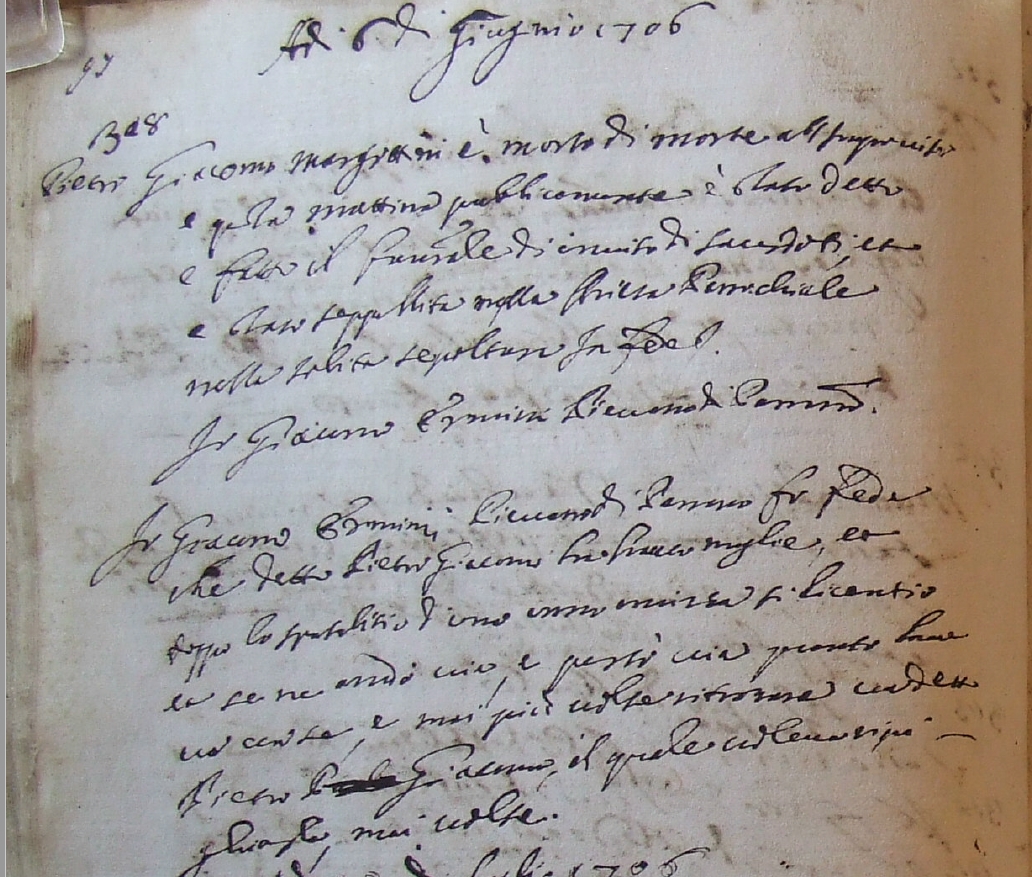 Adi 6 di Giugnio 1706
97
348
Pietro Giacomo Margittini è morto di morte all'improviso
e questa mattina publicamente è stato detto
e fatto il funerale di invito di sacerdoti, et
e stato seppellito nella Chiesa Parochiale
nella solita sepoltura In fede
Io Giacomo Ermini Pievano di
Io Giacomo Ermini Pievano di fo fede
che detto Pietro Giacomo moglie, et
doppo lo spatio di uno anno si licentiò
et se ne andò via, e portò via quanto
e mai più volse ritornare detto
Pietro Giacomo, il quale voleva ripi
gliarla, mai volse.
di Luglio 1706